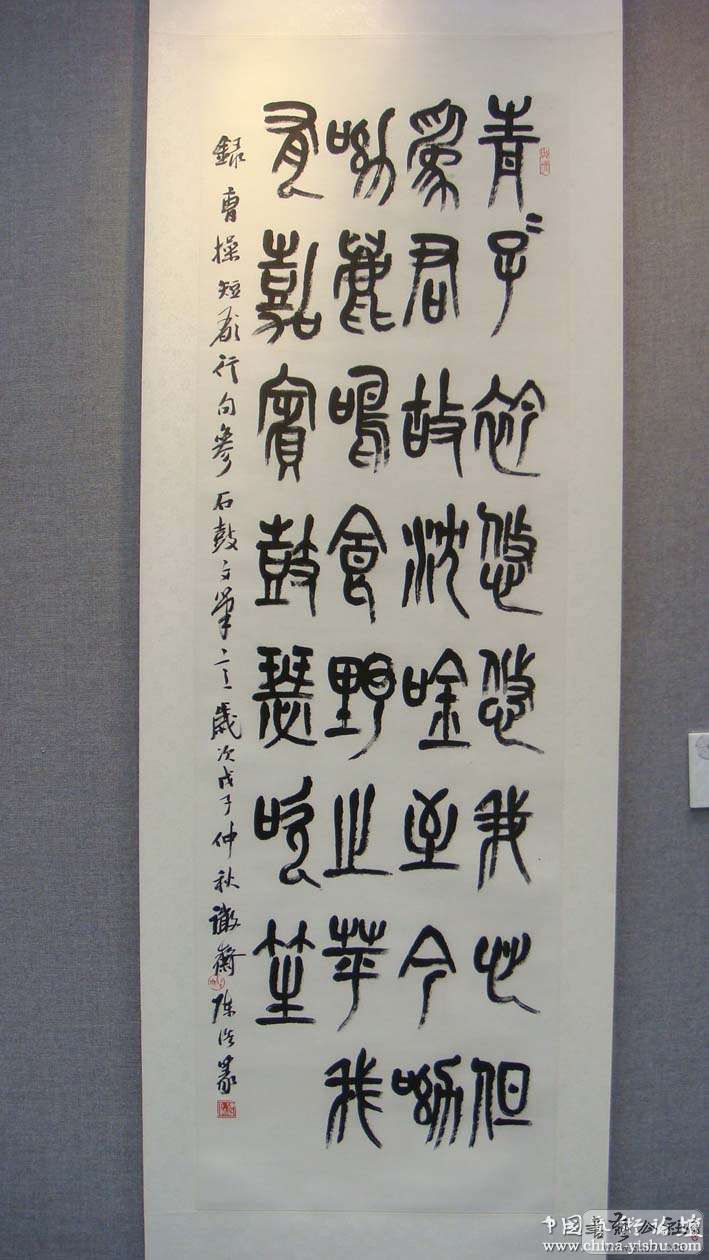 青〻子衿悠悠我心但
爲君故沈唫至今呦
呦鹿鳴食野之苹我
有嘉賓鼓瑟吹笙
錄曹操短歌行句參石鼓文筆意歲次戊子仲秋齋陈浩篆
中国艺术论坛
www.china-yishu.com